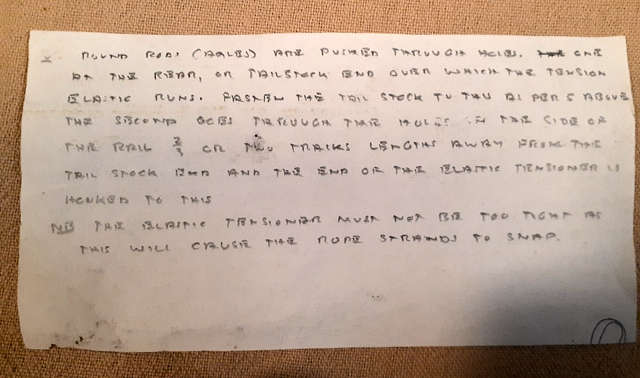 x ROUND RODS (AXLES) ARE PUSHED THROUGH HOLES. ONE
AT THE REAR, OR TAILSTOCK END OVER WHICH THE TENSION
ELASTIC RUNS. FASTEN THE TAIL STOCK TO THIS AS PER 5 ABOVE
THE SECOND GOES THROUGH THE HOLES IN THE SIDE OF
THE RAIL 2/3 OR TWO TRAIKS LENGTHS AWAY FROM THE
TAIL STOCK END AND THE END OF THE ELASTIC TENSIONER IS
HOOKED TO THIS
NB THE ELASTIC TENSIONER MUST NOT BE TOO TIGHT AS
THIS WILL CAUSE THE ROPE STRANDS TO SNAP.